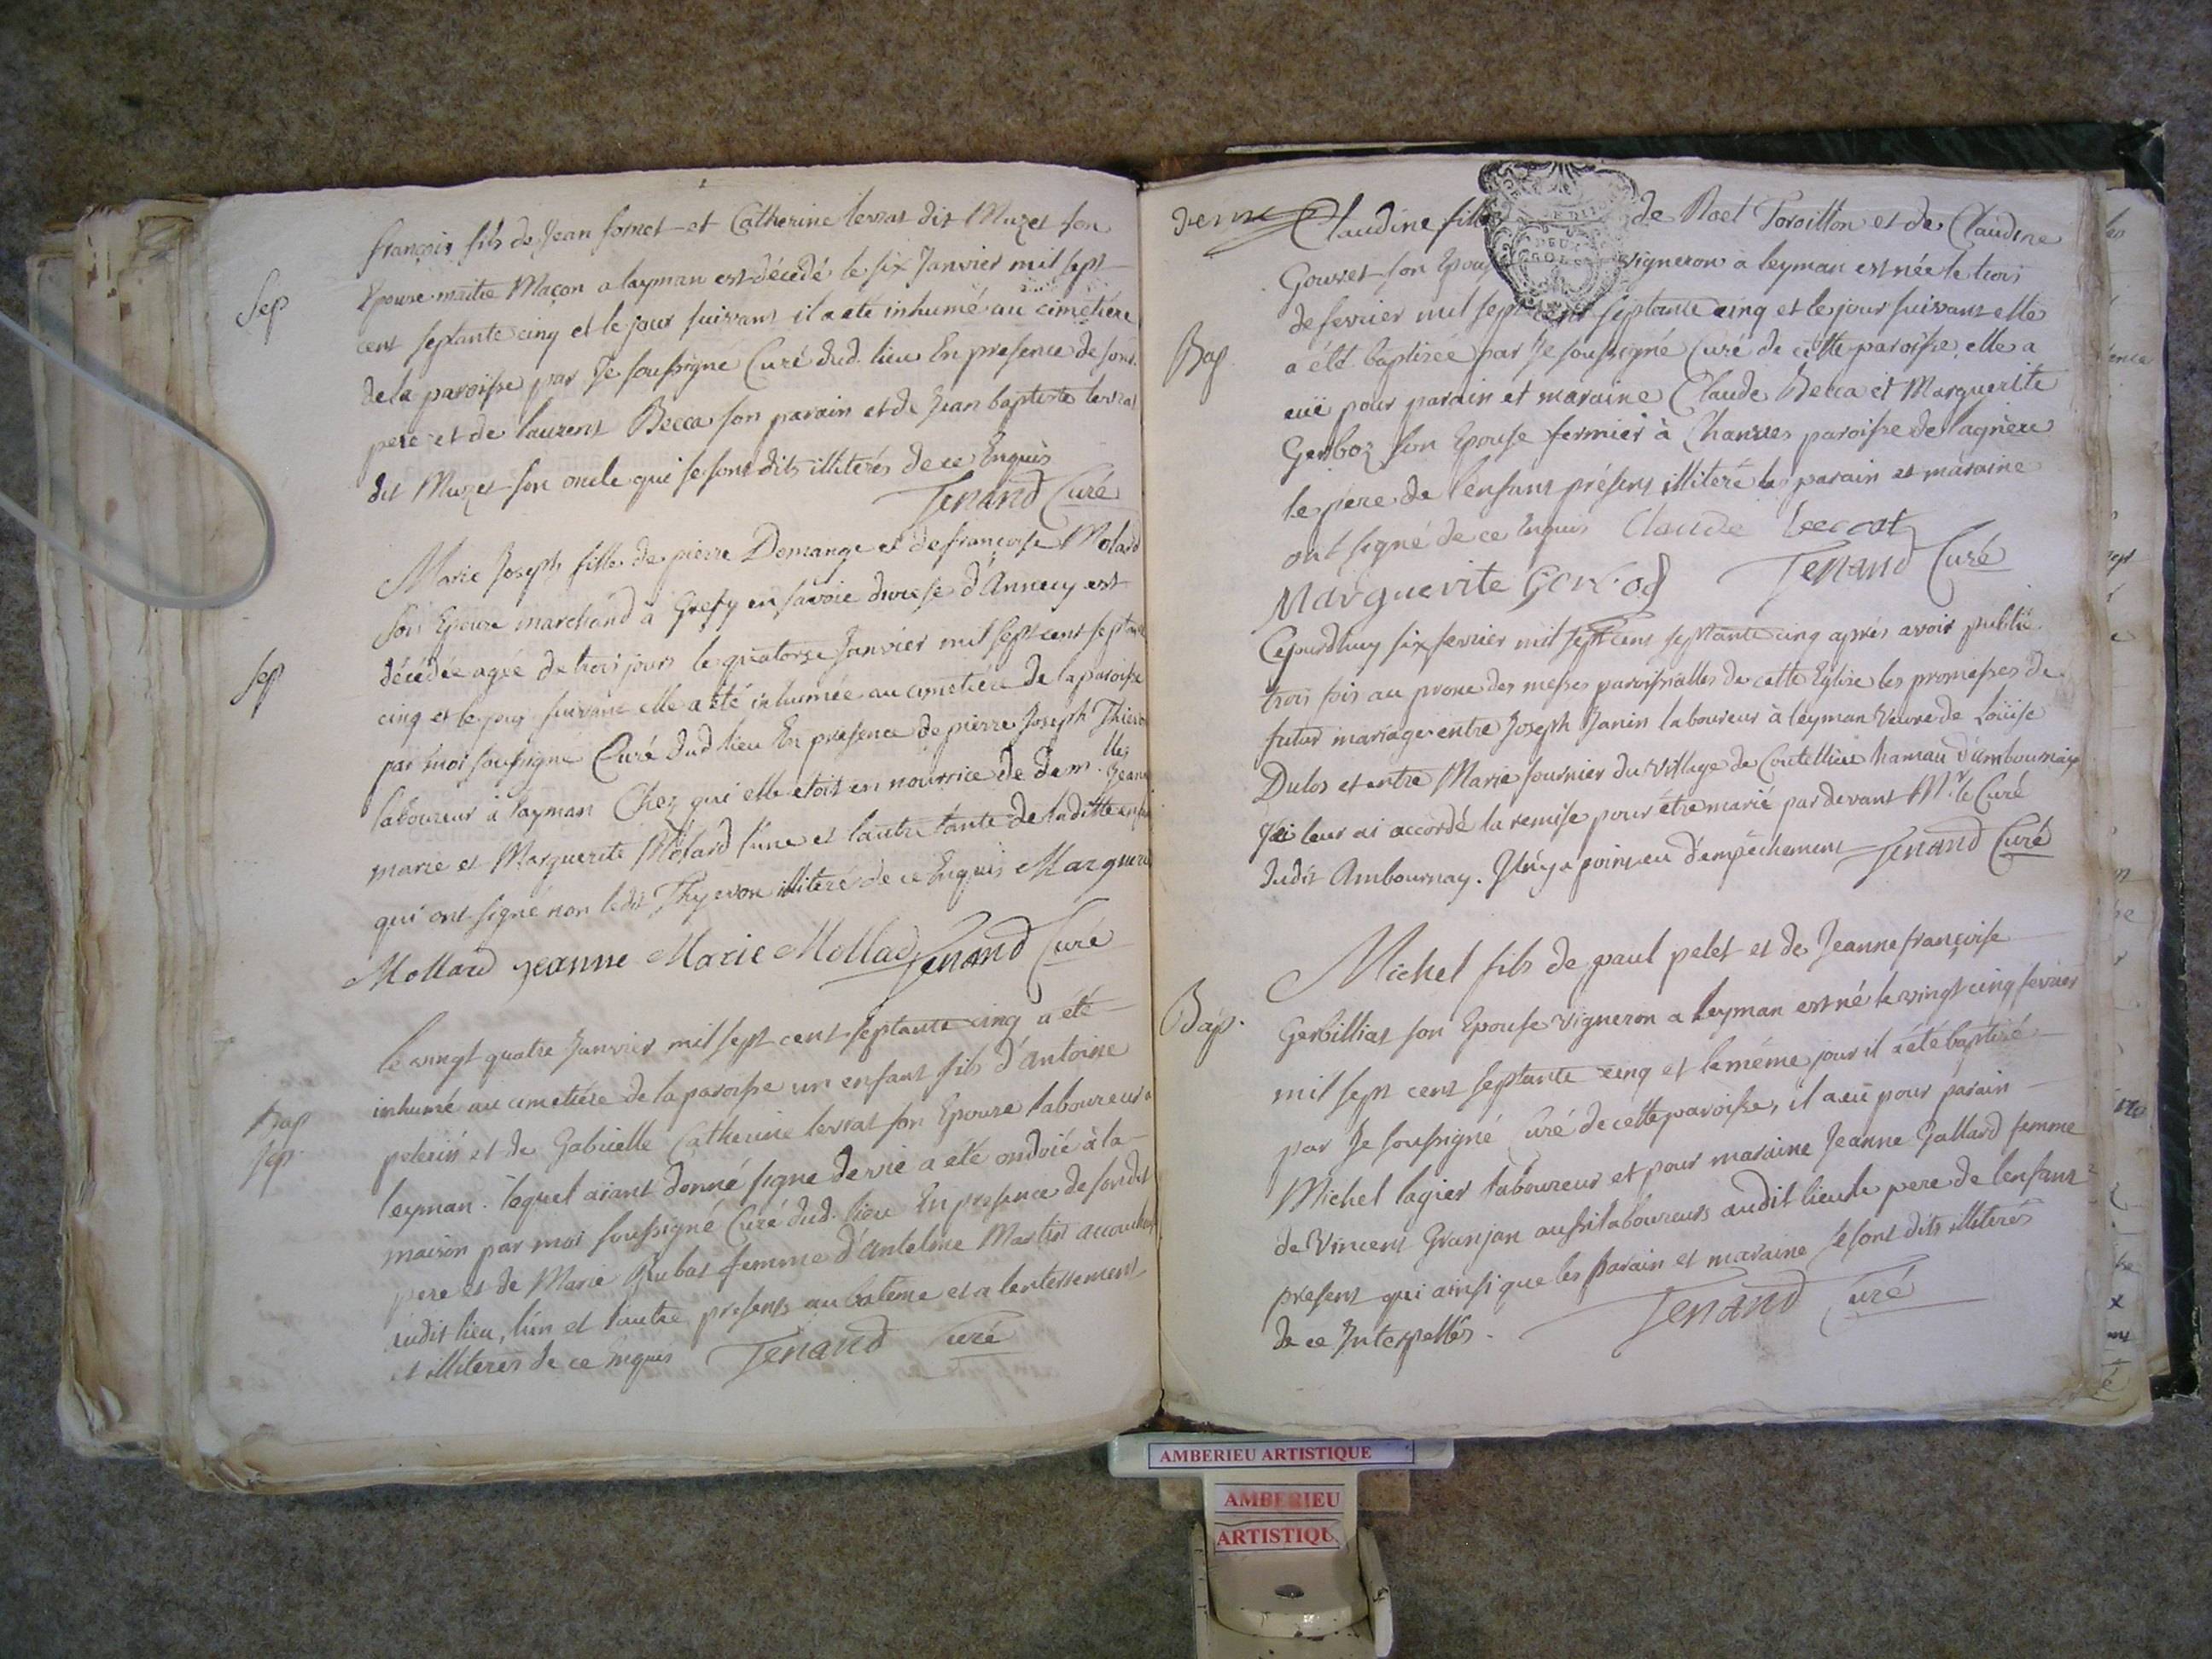 françois fils de Jean fornet et Catherine terrat dit Muzet son
Sep
Epouse maitre Maçon a layman est décédé le six Janvier mil sept
cent septante cinq et le jour suivant il a eté inhumé au cimetière
de la paroisse par Je soussigné Curé dud. lieu En presence de son d.
pere et de laurent Becca son parain et de Jean baptiste terrat
dit Muzet son oncle qui se sont dits illiterés de ce Enquis
Tenand Curé
Marie Joseph fille de pierre Domange et de françoise Molard
son Epouse marchand à Gresy en savoie diocese d'Annecy est
Sep
décédée agée de trois jours le quatorze Janvier mil sept cent septante
cinq et le jour suivant elle a été inhumée au cimetiére de la paroisse
par moi soussigné Curé dud lieu En presence de pierre Joseph
laboureur à layman Chez qui elle étoit en nourrice de dem.lles Jeanne
marie et Marguerite Molard l'une et l'autre tante de laditte
qui ont signé non ledit Thyevon illiteré de ce Enquis Marguerite
Mollard jeanne Marie Mollad Tenand Curé
le vingt quatre Janvier mil sept cent septante cinq a été
inhumé au cimetiére de la paroisse un enfant fils d'antoine
Bap
Sep.
pelerin et de Gabrielle Catherine terrat son Epouse laboureur a
leyman. lequel aiant donné signe de vie a eté ondoié à la
maison par moi soussigné Curé dud. lieu En presence de son dit
pere et de Marie Rubat femme d'antelme Martin
audit lieu, l'un et l'autre presents au batême et a lenterrement
et illiterés de ce enquis Tenand Curé
Claudine fille de Noel Toroillon et de Claudine
Gouvet son Epouse vigneron à leyman est née le trois
de fevrier mil sept cent septante cinq et le jour suivant elle
Bap
a été baptisée par Je soussigné Curé de cette paroisse, elle a
eüe pour parain et maraine Claude Becca et Marguerite
Gerboz son Epouse fermier à Chanves paroisse de lagnieu
le pere de l'enfant présent illiteré les parain et maraine
ont signé de ce Enquis Claude
Marguerite Tenand Curé
Cejourdhuy six fevrier mil sept cent septante cinq aprés avoir publié
trois fois au prone des messes paroissialles de cette Eglise les promesses de
futur mariage entre Joseph Janin laboureur à leyman Veuve de Loüise
Dulos et entre Marie fournier du village de Coutellieu hamau d'Ambournay
Je leur ai accordé la remise pour étre marié pardevant Mr. le Curé
dudit Ambournay. Il n'y a point eu d'empêchement Tenand Curé
Michel fils de paul pelet et de Jeanne françoise
Bap.
Gerbilliat son Epouse vigneron a leyman est né le vingt cinq fevrier
mil sept cent septante cinq et le même jour il a été baptisé
par Je soussigné Curé de cette paroisse, il a eü pour parain
Michel lagier laboureur et pour maraine Jeanne Gallard femme
de Vincent Granjan aussi laboureurs audit lieu le pere de lenfant
present qui ainsi que les parain et maraine se sont dits illiterés
de ce Interpellés. Tenand Curé
AMBERIEU ARTISTIQUE
AMBERIEU
ARTISTIQU